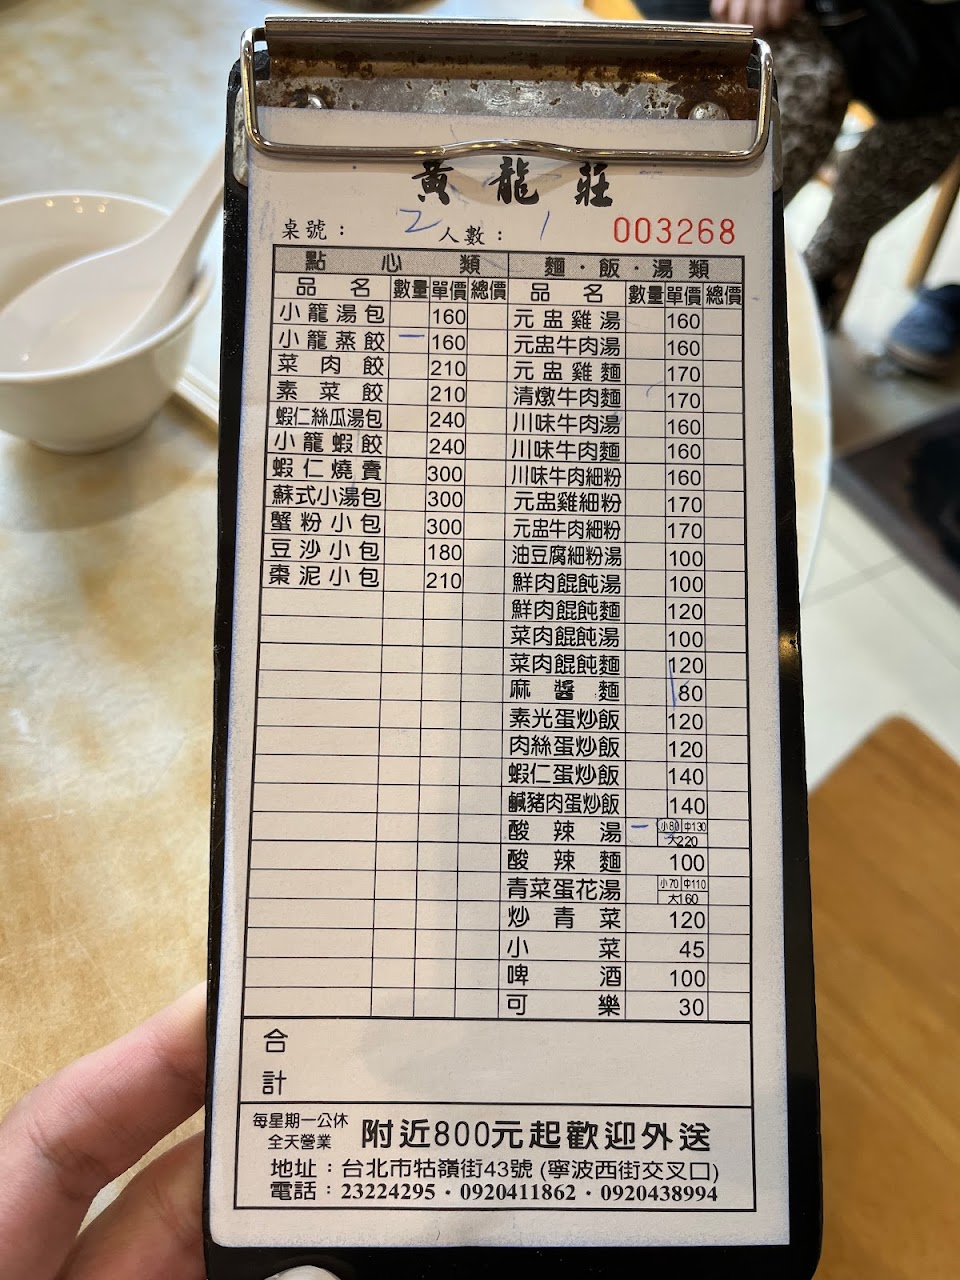 黃龍莊
桌號： 2 人數： 1 003268
點心類 麵·飯·湯類
品名 數量 單價 總價 品名 數量 單價 總價
小籠湯包 160 元盅雞湯 160
小籠蒸餃 一 160 元盅牛肉湯 160
菜肉餃 210 元盅雞麵 170
素菜餃 210 清燉牛肉麵 170
蝦仁絲瓜湯包 240 川味牛肉湯 160
小籠蝦餃 240 川味牛肉麵 160
蝦仁燒賣 300 川味牛肉細粉 160
蘇式小湯包 300 元盅雞細粉 170
蟹粉小包 300 元盅牛肉細粉 170
豆沙小包 180 油豆腐細粉湯 100
棗泥小包 210 鮮肉餛飩湯 100
鮮肉餛飩麵 120
菜肉餛飩湯 100
菜肉餛飩麵 120
麻醬麵 80
素光蛋炒飯 120
肉絲蛋炒飯 120
蝦仁蛋炒飯 140
鹹豬肉蛋炒飯 140
酸辣湯 一 小80 中130 大220
酸辣麵 100
青菜蛋花湯 小70 中110 大160
炒青菜 120
小菜 45
啤酒 100
可樂 30
合計
每星期一公休
全天營業
附近800元起歡迎外送
地址：台北市牯嶺街43號 (寧波西街交叉口)
電話：23224295·0920411862·0920438994